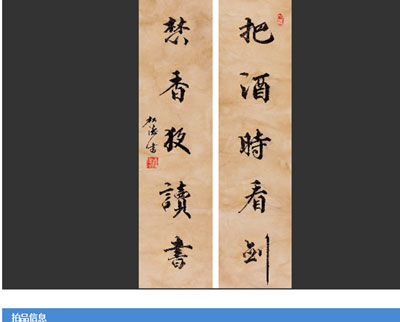 把酒時看劍
焚香夜讀書
松濤書
拍品信息